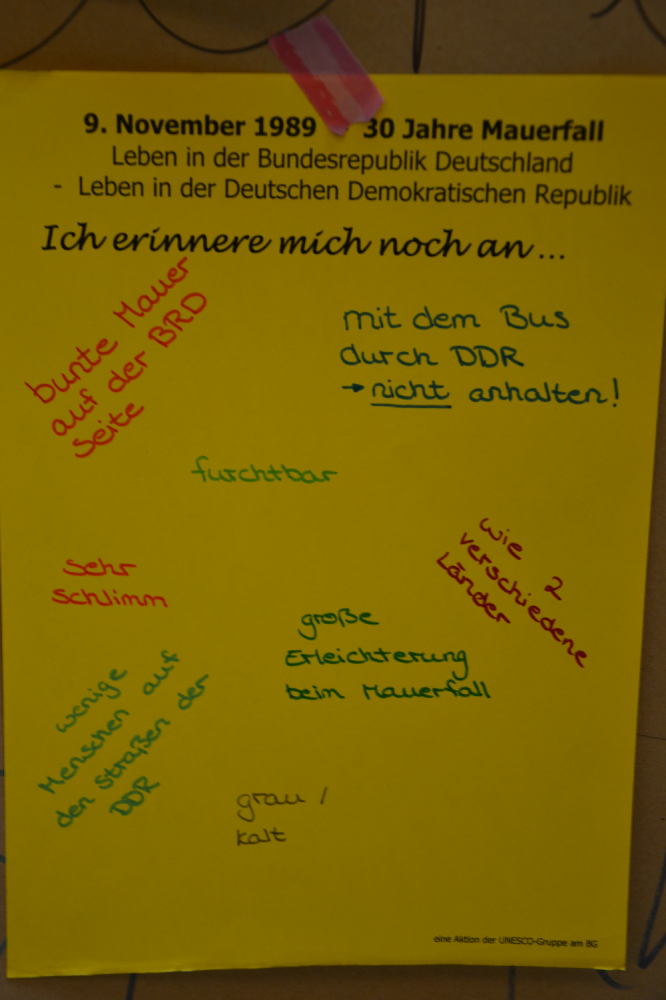 9. November 1989 30 Jahre Mauerfall
Leben in der Bundesrepublik Deutschland
- Leben in der Deutschen Demokratischen Republik
Ich erinnere mich noch an...
bunte Mauer
auf der BRD
Seite
mit dem Bus
durch DDR
→ nicht anhalten!
furchtbar
sehr
schlimm
wie 2
verschiedene
Länder
große
Erleichterung
beim Mauerfall
wenige
Menschen auf
den Straßen der
DDR
grau /
kalt
eine Aktion der UNESCO-Gruppe am BG